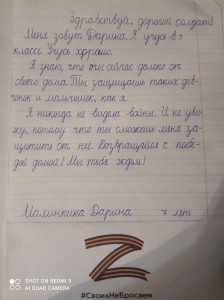 Здравствуй, дорогой солдат!
Меня зовут Дарина. Я учусь в 1
классе. Учусь хорошо.
Я знаю, что ты сейчас далеко от
своего дома. Ты защищаешь таких дев-
чонок и мальчишек, как я.
Я никогда не видела войны. И не уви-
жу, потому что ты сможешь меня за-
щитить от неё. Возвращайся с побе-
дой домой! Мы тебя ждём!
Малинкина Дарина 7 лет.
#СвоихНеБросаем
SHOT ON REDMI 9
AI QUAD CAMERA